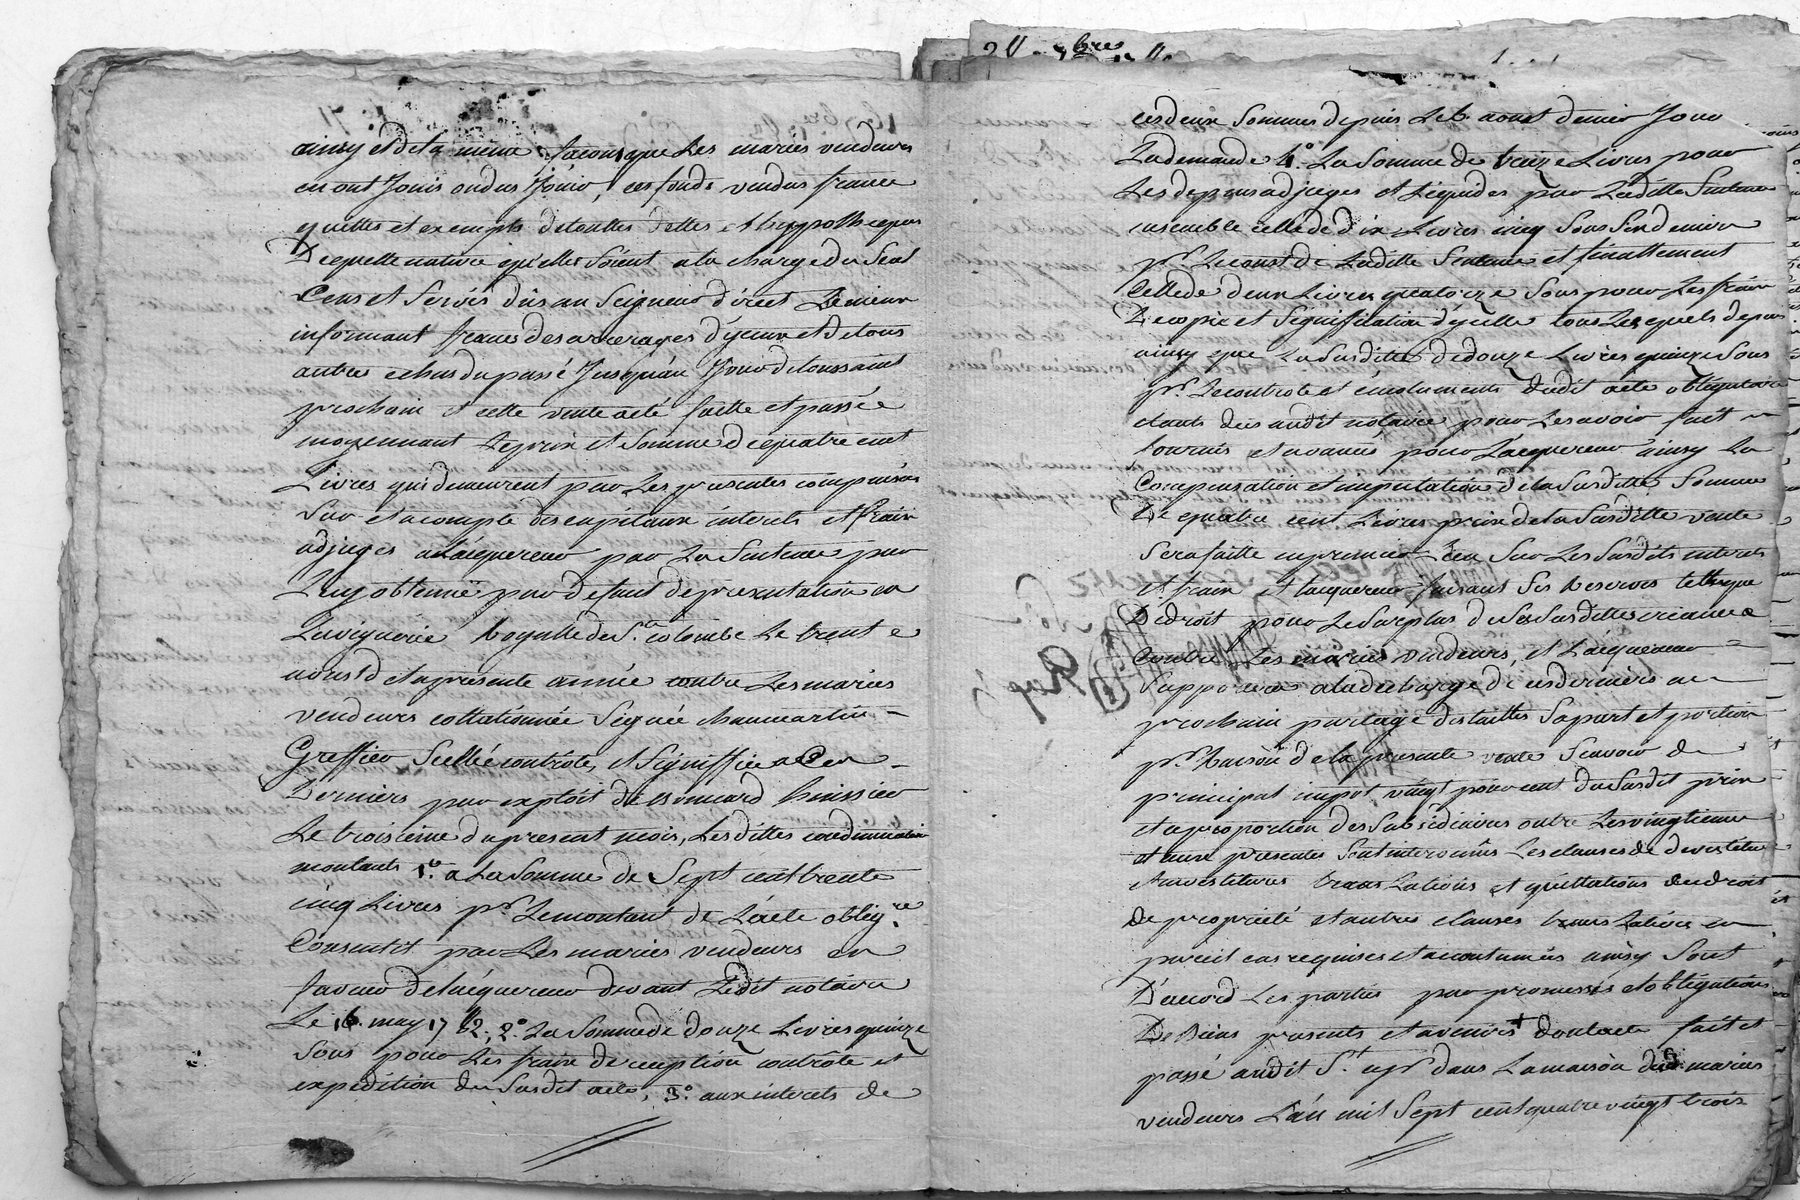 ainsy et de la même façon que les mariés vendeurs
en ont jouis ou dus jouir, ces fonds vendus francs
quittes et exempts de touttes dettes et hypotheques
De quelle nature qu'elles soient a la charge du seul
Cens et servis dûs au seigneur direct Le mieux
informant francs des arrerages d'yceux et de tous
autres echus du passé jusqu'au jour de toussaint
prochain et cette vente a eté faitte et passée
moyennant Le prix et somme de quatre cent
Livres qui demeurent par Les presentes compensés
sur et a compte des capitaux interets et frais
adjugés a Lacquereur par La sentence par
Luy obtenüe par defaut de presentation en
La viguerie Royalle de Ste colombe Le trente
aoust de la presente année contre Les mariés
vendeurs collationnée signée chaumartin
Greffier scellée controlée, et signiffiée a ces
Derniers par exploit de huissier
Le troisieme du present mois, Lesdittes condamnations
montants 1.° a La somme de sept cent trente
cinq Livres pr Le montant de L'acte oblig.re
Consentit par Les mariés vendeurs en
faveur de Lacquereur devant Ledit notaire
Le 16 may 17 2.° La somme de douze Livres quinze
sous pour Les frais de reception controle et
expedition du susdit acte, 3.° aux interets de
ces deux sommes depuis Le aoust dernier jour
La demande 4.° La somme de treize Livres pour
Les depens adjugés et Liquidés par Laditte sentence
ensemble celle de dix Livres cinq sous six deniers
pr Le coust de Laditte sentence et finallement
Celle de deux Livres quatorze sous pour Les frais
De copie et signification d'ycelle tous Lesquels depens
ainsy que La susditte de douze Livres quinze sous
pr Le controle et émoluments dudit acte obligatoire
etants deüs audit notaire pour Les avoir fait
fournis et avancés pour Lacquereur ainsy La
Compensation et imputation de la susditte somme
De quatre cent Livres prix de la susditte vente
sera faitte en premier lieu sur Les susdits interets
et frais et Lacquereur faisant ses reserves
De droit pour Le surplus de sa susditte creance
Contre Les mariés vendeurs, et Lacquereur
supportera a la decharge de ces derniers au
prochain partage des tailles sa part et portion
pr Raison de la presente vente scavoir de
principal impot vingt pour cent du susdit prix
et a proportion des subsidiaires outre Les vingtiemes
et aux presentes sont intervenües Les clauses de devestiture
investitures translations et quittations des droits
de propriété et autres clauses translatives en
pareil cas requises et accoutumées ainsy sont
D'accord Les parties par promesses et obligations
De Biens presents et avenirs + dont acte fait et
passé audit St dans La maison des mariés
vendeurs L'an mil sept cent quatre vingt trois